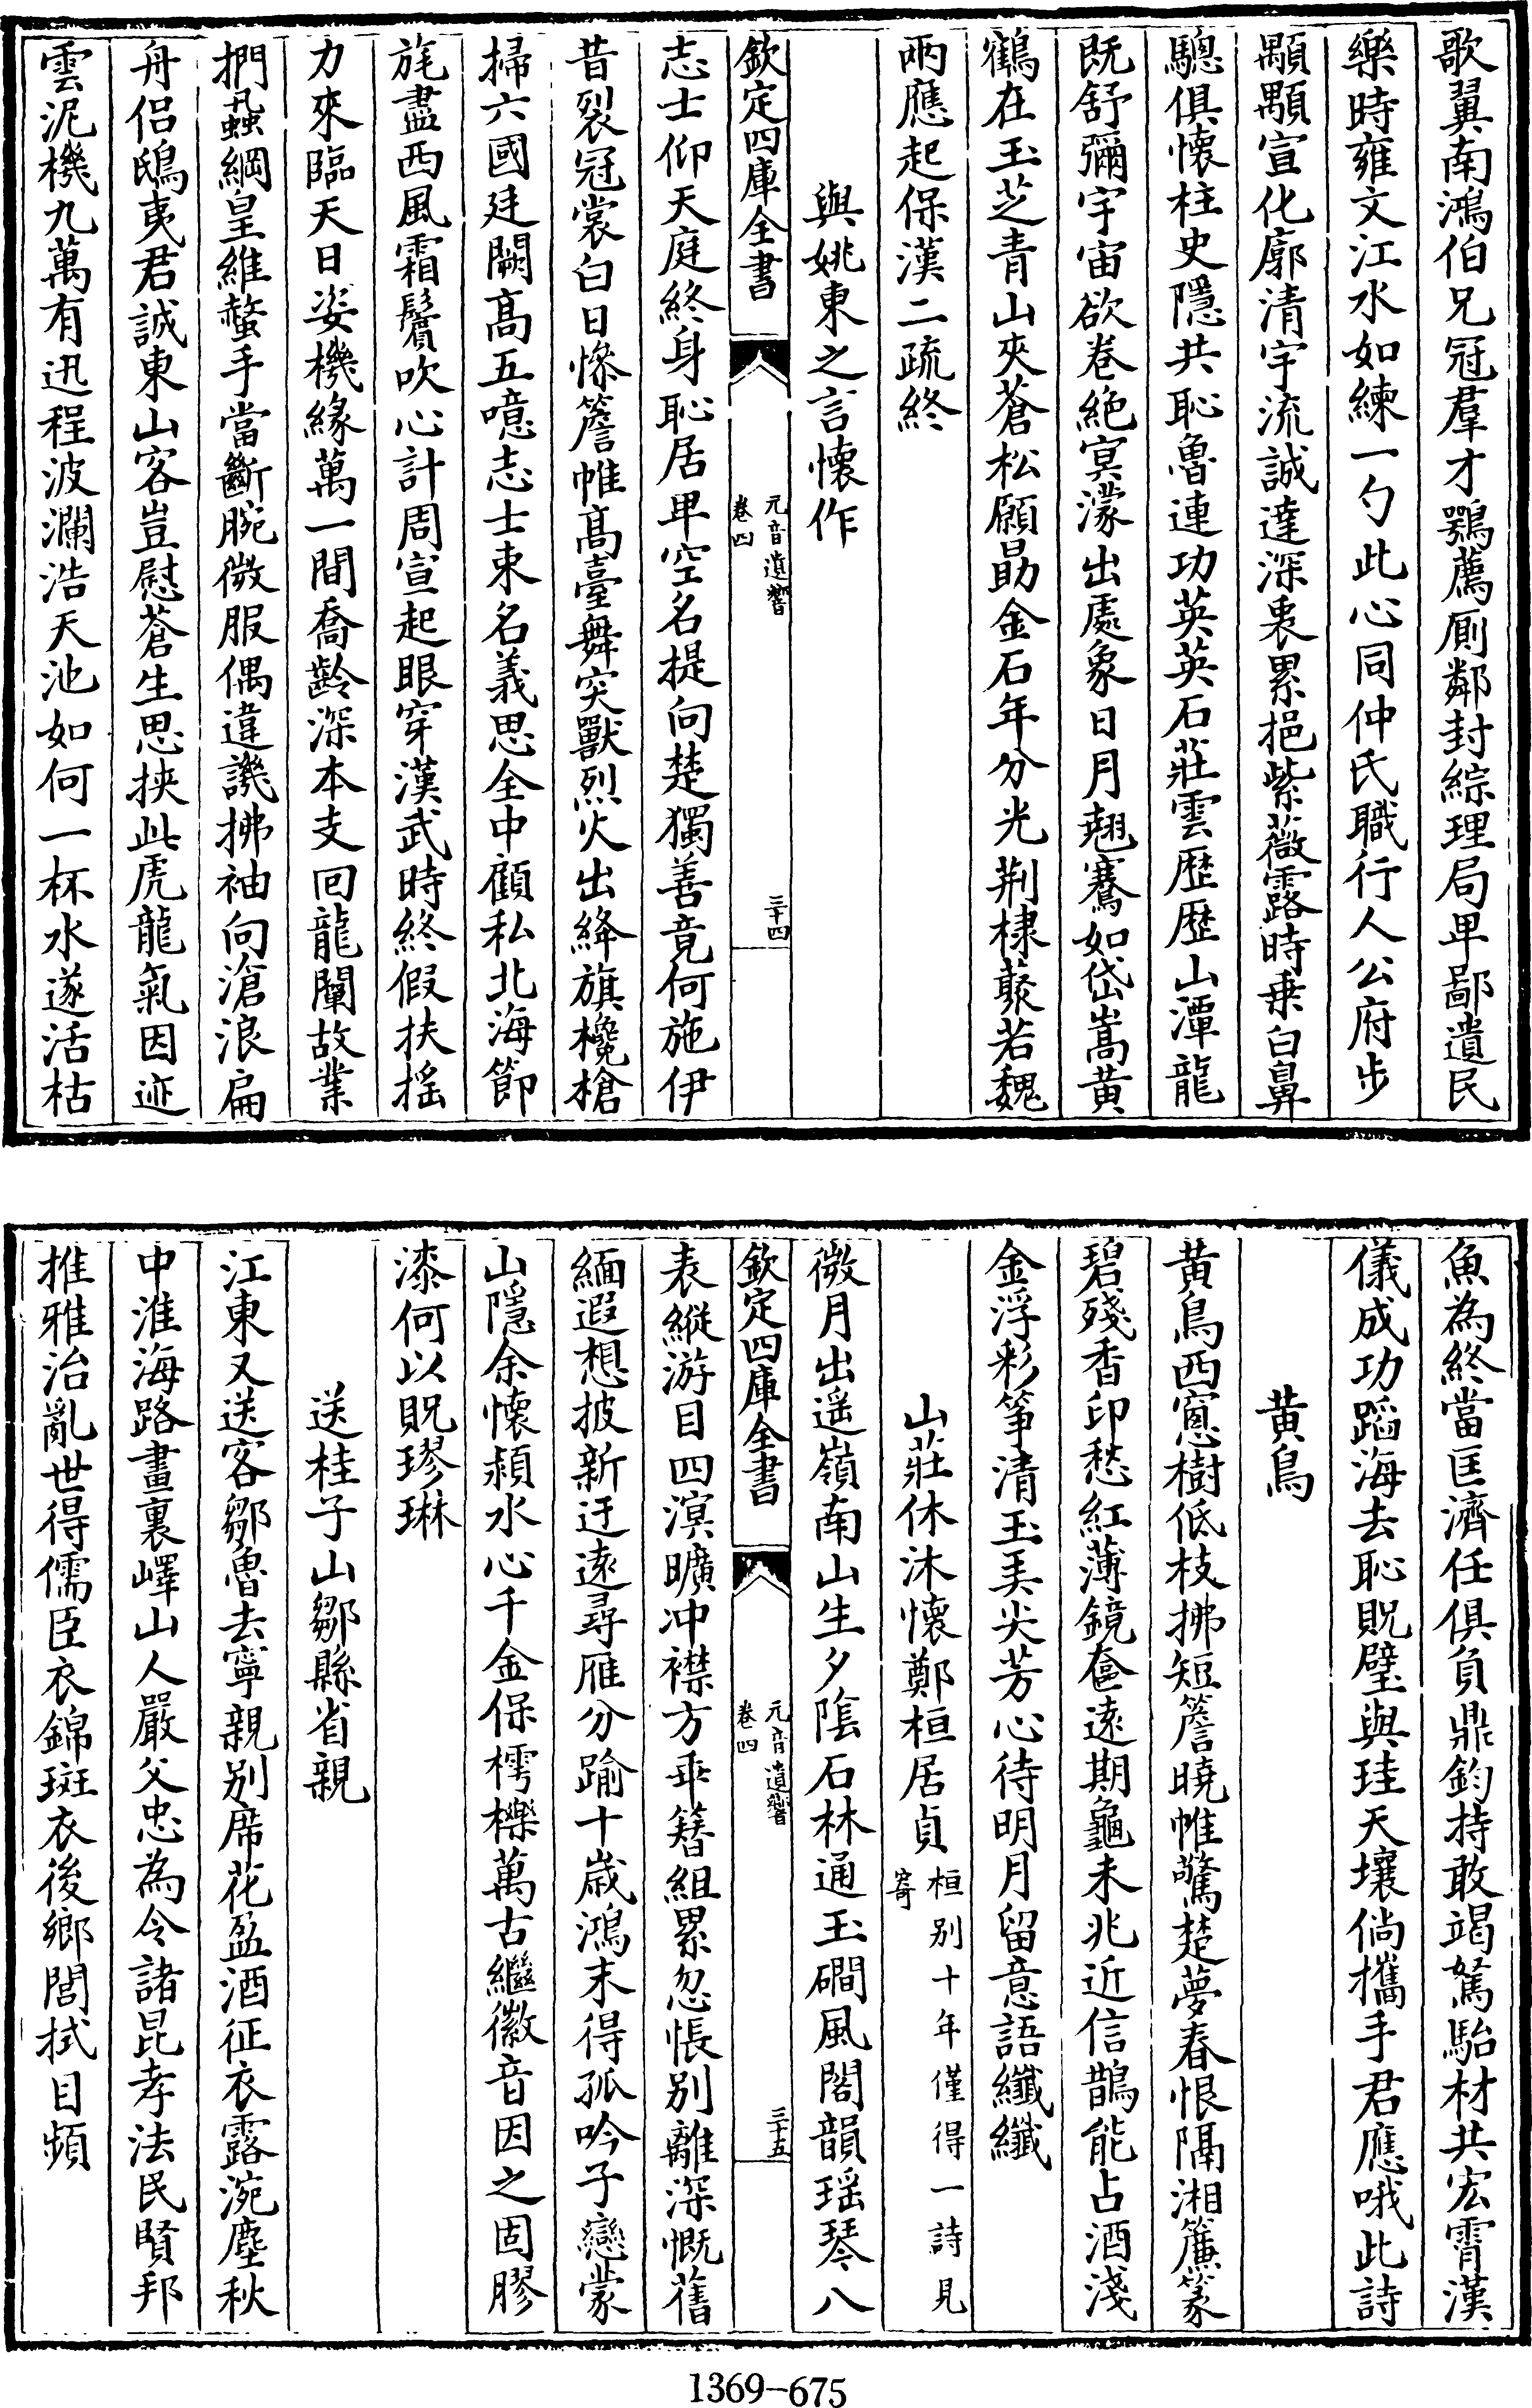 歌翼南鴻伯兄冠羣才鶚薦厠鄰封綜理局卑鄙遺民
樂時雍文江水如練一勺此心同仲氏職行人公府步
顒顒宣化廓清宇流誠達深衷累挹紫薇露時乗白鼻
驄俱懷柱史隱共恥魯連功英英石莊雲歴歴山潭龍
既舒彌宇宙欲卷絶冥濛出處象日月翹騫如岱嵩黄
鶴在玉芝青山夾蒼松願勗金石年分光荆棣藂若魏
兩應起保漢二疏終
與姚東之言懷作
欽定四庫全書
元音遺響
卷四
三十四
志士仰天庭終身恥居卑空名提向楚獨善竟何施伊
昔裂冠裳白日慘簷帷髙臺舞突獸烈火出絳旗欃槍
掃六國廷闕髙五噫志士束名義思全中顧私北海節
旄盡西風霜鬢吹心計周宣起眼穿漢武時終假扶揺
力來臨天日姿機緣萬一間喬齡深本支回龍闡故業
捫蝨綱皇維螫手當斷腕微服偶違譏拂袖向滄浪扁
舟侣鴟夷君誠東山客豈慰蒼生思挾此虎龍氣因迹
雲泥機九萬有迅程波瀾浩天池如何一杯水遂活枯
魚為終當匡濟任俱負鼎鈞持敢竭駑駘材共宏霄漢
儀成功蹈海去恥貺璧與珪天壤倘攜手君應哦此詩
黄鳥
黄鳥西窻樹低枝拂短簷曉帷驚楚夢春恨隔湘簾篆
碧殘香印愁紅薄鏡奩逺期龜未兆近信鵲能占酒淺
金浮彩箏清玉美尖芳心待明月留意語纎纎
山莊休沐懷鄭桓居貞桓别十年僅得一詩見
寄
微月出遥嶺南山生夕隂石林通玉磵風閣韻瑶琴八
欽定四庫全書
元音遺響
卷四
三十五
表縱游目四溟曠冲襟方乖簮組累忽悵别離深慨舊
緬遐想披新迂逺尋雁分踰十歳鴻末得孤吟子戀蒙
山隱余懷潁水心千金保樗櫟萬古繼徽音因之固膠
漆何以貺璆琳
送桂子山鄒縣省親
江東又送客鄒魯去寧親别席花盈酒征衣露浥塵秋
中淮海路畫裏嶧山人嚴父忠為令諸昆孝法民賢邦
推雅治亂世得儒臣衣錦斑衣後鄉閭拭目頻
1369-675